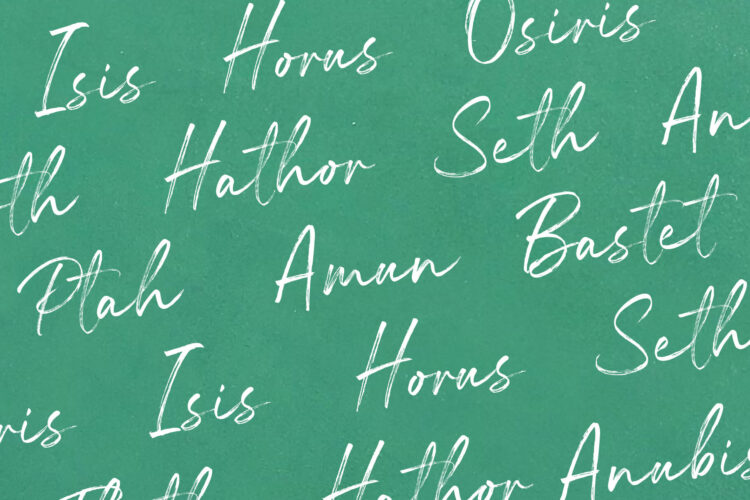 Isis Horus Osiris
th Hathor Seth An
Ptah Amun Bastet
ris Isis Horus Seth
Hathor Anubis